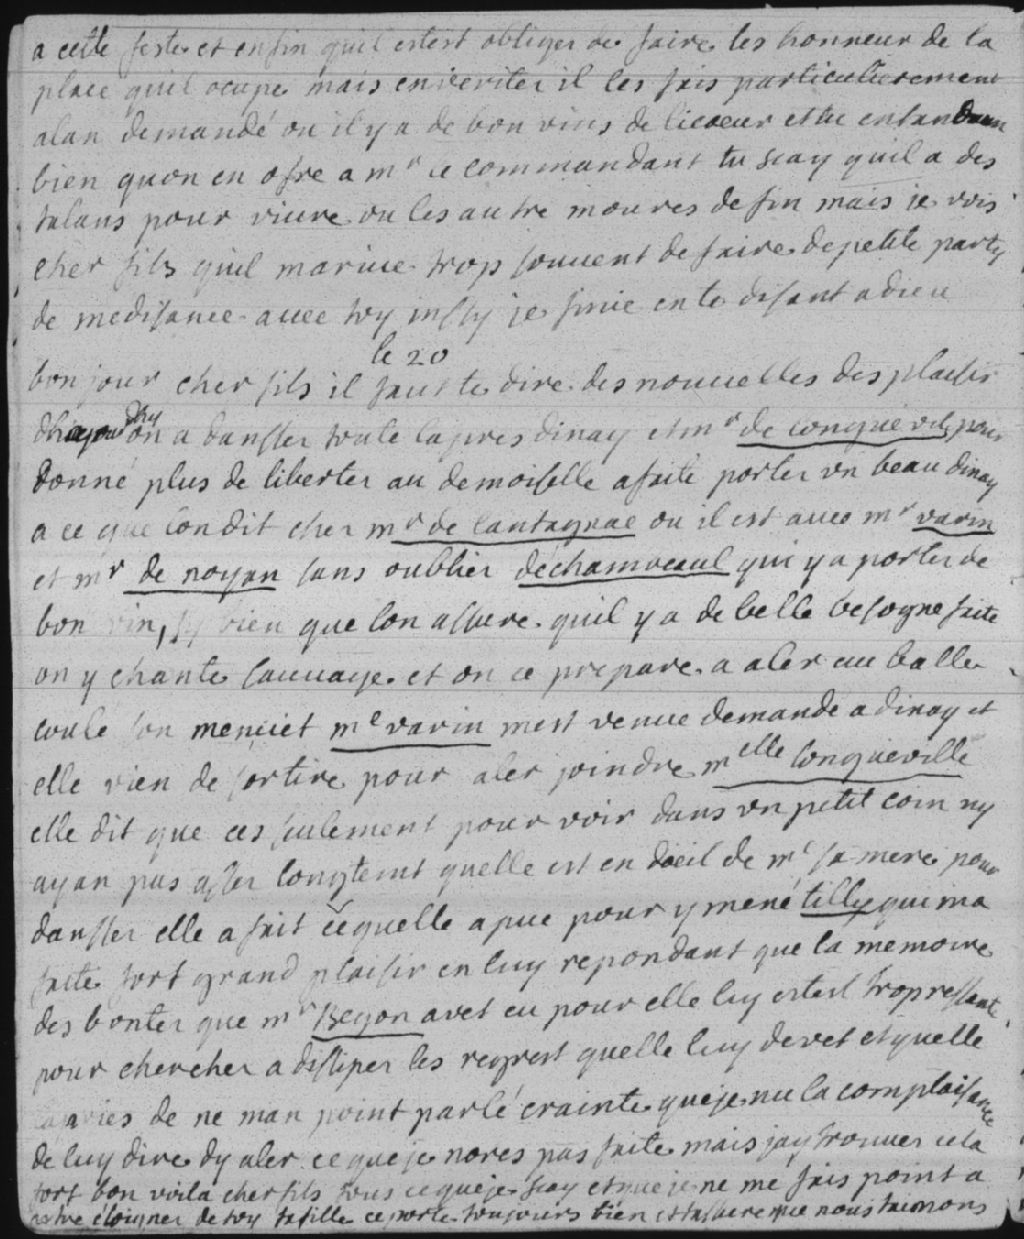 a cette feste et enfin quil estest obliger de faire les honneur de la
place quil ocupe mais enveriter il les fais particulierement
alan demandé ou il y a de bon vins de licoeur et tu entan
bien quon en ofre a mr ce commandant tu scay quil a des
talans pour vivre ou les autre moures de fin mais je vois
cher fils quil marive trop souvent de faire de petite party
de medisance avec toy inssy je finie en te disant adieu
le 20
bonjour cher fils il faut te dire des nouvelles des plaisir
dhy on a dansser toute lapres dinay et mr de conquevile pour
donné plus de liberter au demoiselle a faite porter un beau dinay
a ce que lon dit cher mr de lantagnac ou il est avec mr varin
et mr de noyan sans oublier dechamveaul qui y a porter de
bon vin, sy bien que lon assure quil y a de belle besogne faite
on y chante sauvage et on ce prepare a aler au balle
son menuet me varin mest venue demande a dinay et
elle vien de sortire pour aler joindre melle lonqueville
elle dit que ces seulement pour voir dans un petit coin ny
ayan pas asser longtemt quelle est en doeil de me sa mere pour
dansser elle a fait ce quelle a pue pour y mené tilly qui ma
faite fort grand plaisir en luy repondant que la memoire
des bonter que mr Begon avet eu pour elle luy estest trop
pour chercher a dissiper les regrest quelle luy devet et quelle
de ne man point parlé crainte que je nu la complaisance
de luy dire dy aler ce que je nores pas faite mais jay trouver cela
fort bon voila cher fils tous ce que je scay et que je ne me fais point a
éloigner de toy ta fille ce porte toujours bien et que nous taimons